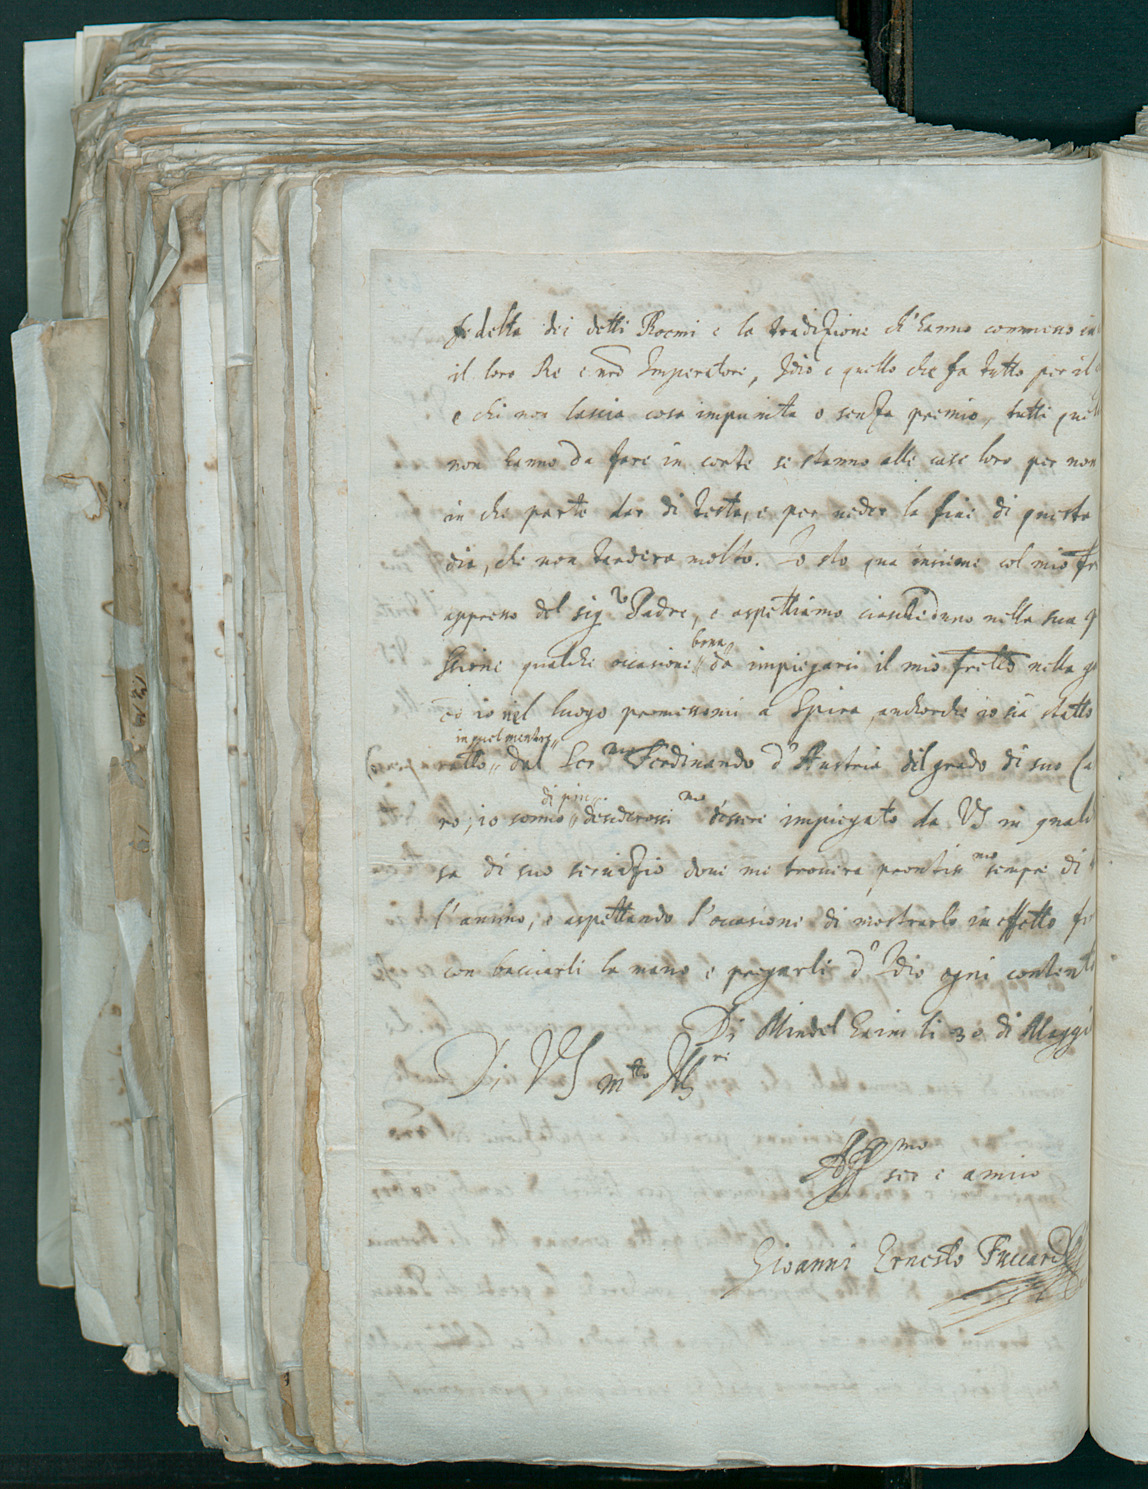 fedelta dei detti Boemi e la tradizione ch'hanno commesso in
il loro Re e nro Imperatore, Idio e quello che fa tutto per il
e chi non lascia cosa impunita o senza premio, tutti quel
non hanno da fare in corte se stanno alle case loro per non
in che parte dar di testa, e per veder la fine di questa
dia, che non tardera molto. Io sto qua insieme col mio fr
appresso del sigr Padre, e aspettiamo ciascheduno nella sua
qualche occasione bona da impiegarci il mio frello nella
io nel luogo promessomi a Spira, anchorche io sia statto
inquel mentre
dal Sermo Ferdinando d'Austria del grado di suo Ca
di piu
ro; io sonno desiderossimo d'essere impiegato da VS in qual
sa di suo servizio dove me trovera prontissmo sempre di
l'animo, e aspettando l'occasione di mostrarlo in effetto
con basciarli la mano e pregarli d'Idio ogni content
Di Mindelhaim li 30 di Maggi
Di VS mto Illri
Affmo
ser e amico
Giovanni Ernesto Fuccari